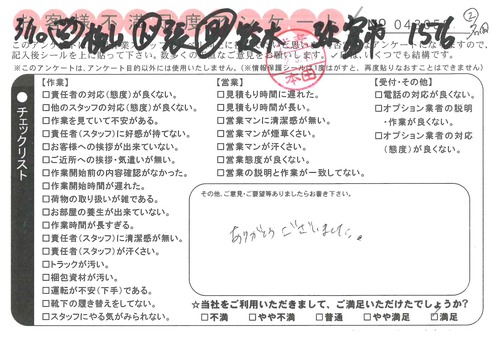 お客様不満足度アンケート
NO 04
3/10
鈴木
1576
記入後シールを上に貼って下さい。
(※このアンケートは、アンケート目的以外には使用いたしません。(※情報保護シールは1度はがすと、再度貼りなおすことはできません)
チェックリスト
【作業】
□責任者の対応(態度)が良くない。
□他のスタッフの対応(態度)が良くない。
□作業を見ていて不安がある。
□責任者(スタッフ)に好感が持てない。
□お客様への挨拶が出来ていない。
□ご近所への挨拶・気遣いが無い。
□作業開始前の内容確認がなかった。
□作業開始時間が遅れた。
□荷物の取り扱いが雑である。
□お部屋の養生が出来ていない。
□作業時間が長すぎる。
□責任者(スタッフ)に清潔感が無い。
□責任者(スタッフ)が汗くさい。
□トラックが汚い。
□梱包資材が汚い。
□運転が不安(下手)である。
□靴下の履き替えをしてない。
□スタッフにやる気がみられない。
【営業】
□見積もり時間に遅れた。
□見積もり時間が長い。
□営業マンに清潔感が無い。
□営業マンが煙草くさい。
□営業マンが汗くさい。
□営業態度が良くない。
□営業の説明と作業が一致してない。
【受付・その他】
□電話の対応が良くない。
□オプション業者の説明
・作業が良くない。
□オプション業者の対応
(態度)が良くない。
その他、ご意見・ご要望等ありましたらお書き下さい。
ありがとうございました。
☆当社をご利用いただきまして、ご満足いただけたでしょうか?
□不満 □やや不満 □普通 □やや満足 ☑満足